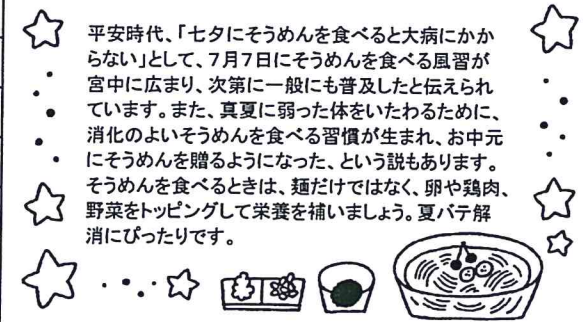 平安時代、「七夕にそうめんを食べると大病にかか
らない」として、7月7日にそうめんを食べる風習が
宮中に広まり、次第に一般にも普及したと伝えられ
ています。また、真夏に弱った体をいたわるために、
消化のよいそうめんを食べる習慣が生まれ、お中元
にそうめんを贈るようになった、という説もあります。
そうめんを食べるときは、麺だけではなく、卵や鶏肉、
野菜をトッピングして栄養を補いましょう。夏バテ解
消にぴったりです。